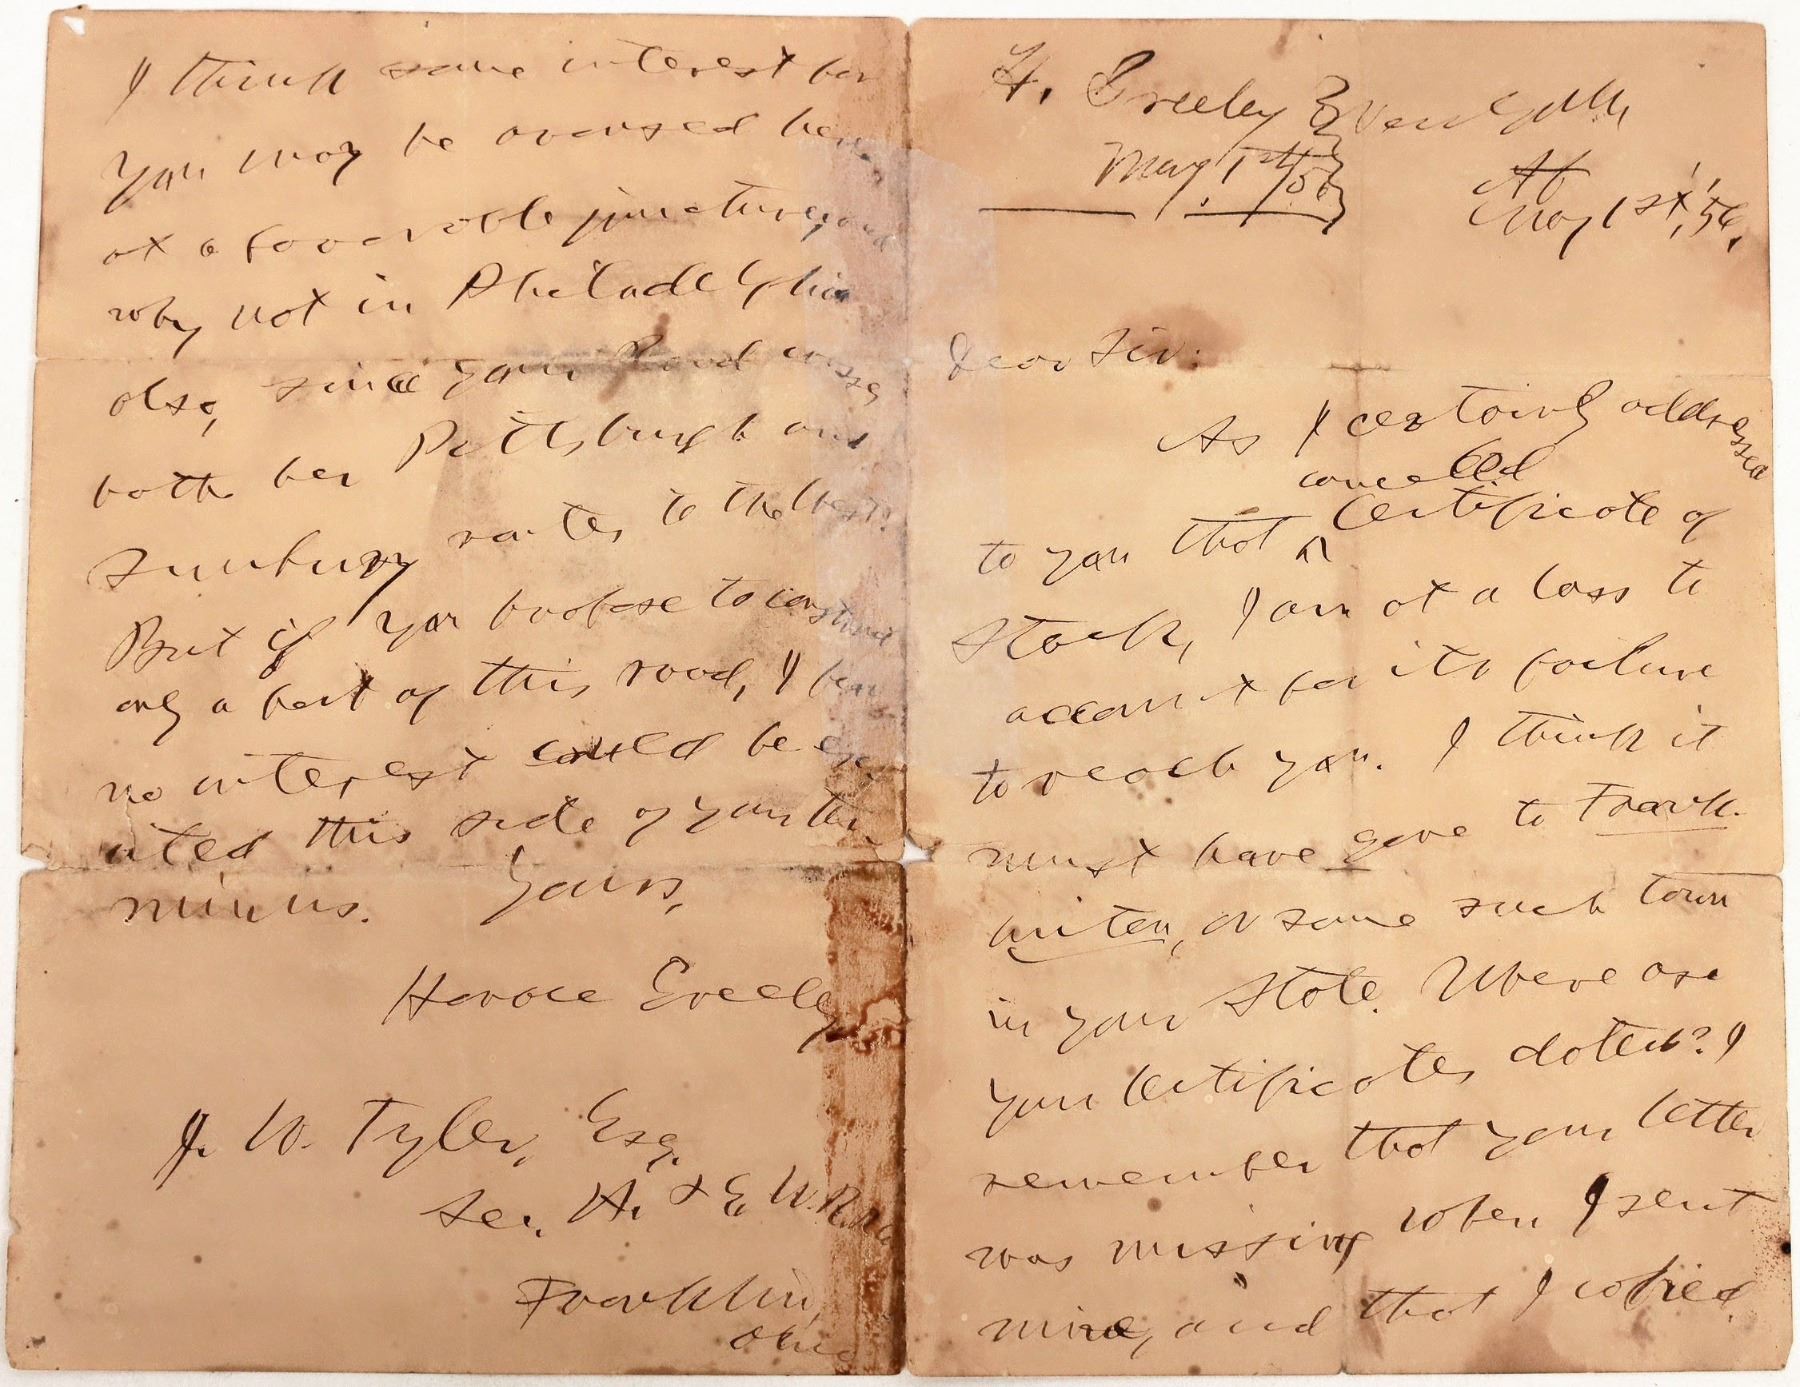 H. Greeley
May 1st/56
New York,
Ap
May 1st, '56.
Dear Sir:
As I certainly addressed
cancelled
to you that ^ Certificate of
Stock, I am at a loss to
account for its failure
to reach you. I think it
must have gone to Frank-
in your State. Where are
your Certificates dated? I
remember that your letter
was missing when I sent
mine, and that I copied
I think some interest for
you may be aroused here
at a favorable juncture, and
why not in Philadelphia
also, since your Road
both her Pittsburgh and
Sunbury routes to the West?
But if you propose to construct
only a part of this road, I fear
no interest could be exc
ited this side of your ter
minus. Yours,
Horace Greeley
J. W. Tyler, Esq.
Sec.
Franklin,
Ohio